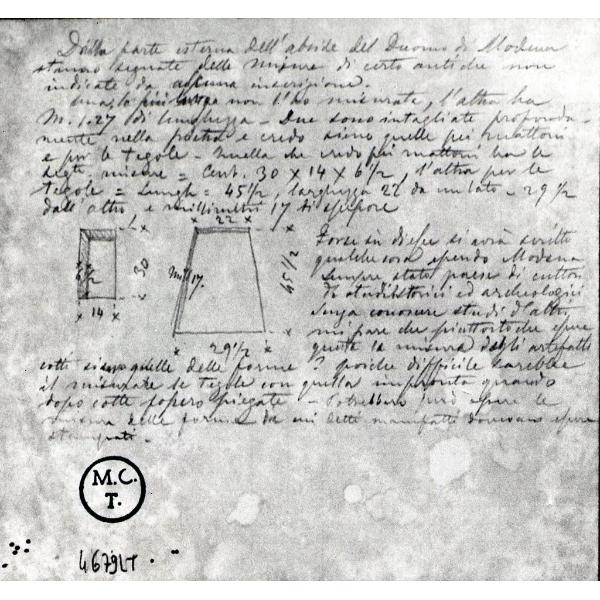 Della parte esterna dell'abside del Duomo di Modena
stanno segnate delle misure di certo antiche non
indicate da alcuna inscrizione.
più lunga non l'ho misurata, l'altra ha
M. 1.27 di lunghezza - Due sono intagliate profonda-
mente nella pietra e credo sieno quelle pei mattoni
e per le tegole - Quella che credo pei mattoni ha le
segti. misure = Cent. 30 x 14 x 6½, l'altra per le
tegole = Lungh = 45½, larghezza 22 da un lato - 29½
dall'altro e millimetri 17 di spessore
22
6½
30
14
Mill 17.
45½
29½
Forse su di esse si avrà scritto
qualche cosa essendo Modena
sempre stato paese di cultori
di studi storici ed archeologici
Senza conoscere studi d'altri,
mi pare che piuttosto che essere
questa la misura degli artefatti
cotti quelle delle forme? poiche difficile sarebbe
il misurare le tegole con quella impronta quando
dopo cotte fossero piegate - Potrebbero però essere le
misura delle forme da cui detti manufatti dovevano essere
stampati.
M.C.
T.
4679LT